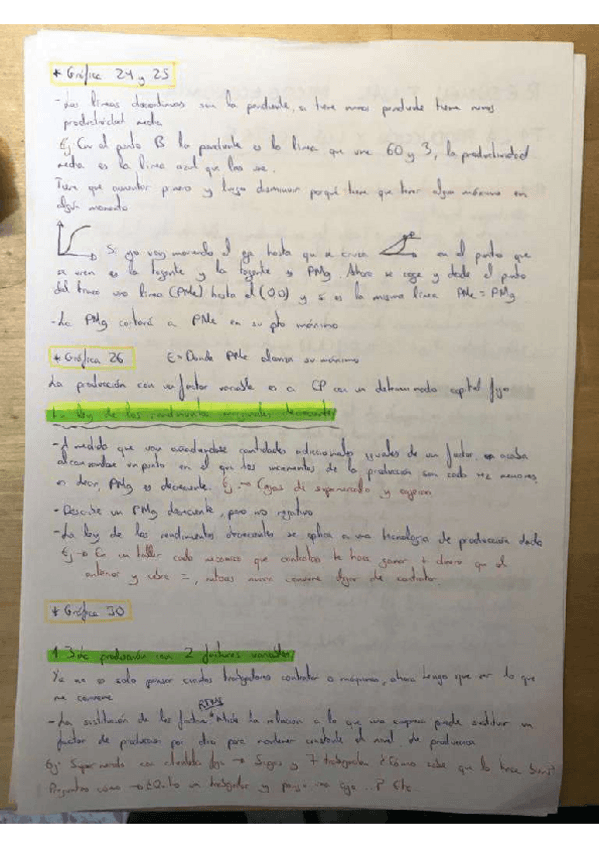 * Gráfica 24 y 25
- Las líneas discontinuas son la pendiente, si tiene menos pendiente tiene menos
productividad media
Ej Con el punto B la pendiente es la línea que une 60 y 3, la productividad
media es la línea azul que los une.
Tiene que aumentar primero y luego disminuir porque tiene que tener algún máximo en
algún momento
Si yo voy moviendo el eje hasta que se cruza en el punto que
se unen es la tangente y la tangente es PMg. Ahora se coge y desde el punto
del trazo una línea (PMe) hasta el (0,0) y si es la misma línea PMe = PMg
- La PMg cortará a PMe en su pto máximo
* Gráfica 26 E = Donde PMe alcanza su máximo
La producción con un factor variable es a CP con un determinado capital fijo
La ley de los rendimientos marginales decrecientes
- A medida que van añadiéndose cantidades adicionales iguales de un factor, se acaba
alcanzando un punto en el que los incrementos de la producción son cada vez menores,
es decir, PMg es decreciente. Ej → Cajas de supermercado y
- Describe un PMg decreciente, pero no negativo
- La ley de los rendimientos decrecientes se aplica a una tecnología de producción dada
Ej → En un taller cada mecánico que contratas te hace ganar + dinero que el
anterior y cobra =, entonces conviene dejar de contratar
* Gráfica 30
producción con 2 factores variables
Ya no es solo pensar cuantos trabajadores contratar o máquinas, ahora tengo que ver lo que
me conviene
RTMS
- La sustitución de los factores mide la relación a la que una empresa puede sustituir un
factor de producción por otro para mantener constante el nivel de producción
Ej: Supermercado con clientela fija → 5 cajas y 7 trabajadores ¿Cómo sabe que lo hace bien?
Preguntas como → ¿Quito un trabajador y pongo una caja ..? Etc